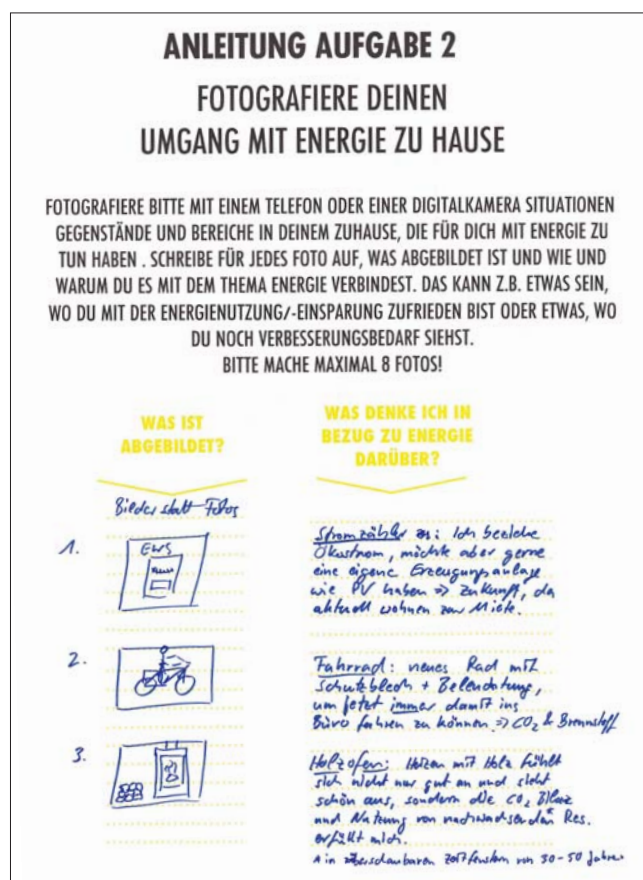 ANLEITUNG AUFGABE 2
FOTOGRAFIERE DEINEN
UMGANG MIT ENERGIE ZU HAUSE
FOTOGRAFIERE BITTE MIT EINEM TELEFON ODER EINER DIGITALKAMERA SITUATIONEN
GEGENSTÄNDE UND BEREICHE IN DEINEM ZUHAUSE, DIE FÜR DICH MIT ENERGIE ZU
TUN HABEN . SCHREIBE FÜR JEDES FOTO AUF, WAS ABGEBILDET IST UND WIE UND
WARUM DU ES MIT DEM THEMA ENERGIE VERBINDEST. DAS KANN Z.B. ETWAS SEIN,
WO DU MIT DER ENERGIENUTZUNG/-EINSPARUNG ZUFRIEDEN BIST ODER ETWAS, WO
DU NOCH VERBESSERUNGSBEDARF SIEHST.
BITTE MACHE MAXIMAL 8 FOTOS!
WAS IST
ABGEBILDET?
WAS DENKE ICH IN
BEZUG ZU ENERGIE
DARÜBER?
Bilder statt Fotos
1.
EWS
Stromzähler : Ich beziehe
Ökostrom, möchte aber gerne
eine eigene Erzeugungsanlage
wie PV haben => Zukunft, da
aktuell wohnen zur Miete.
2.
Fahrrad: neues Rad mit
Schutzblech + Beleuchtung,
um jetzt immer damit ins
Büro fahren zu können => CO2 & Brennstoff
3.
Holzofen: Heizen mit Holz fühlt
sich nicht nur gut an und sieht
schön aus, sondern die CO2 Bilanz
und Nutzung von nachwachsenden Res.
erfüllt mich.
in überschaubaren Zeitfenstern von 30-50 Jahren